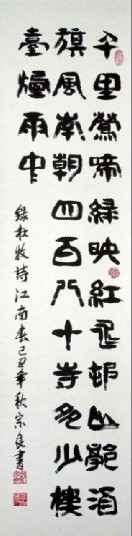 千里鶯啼緑映紅水邨山郭酒
旗風南朝四百八十寺多少樓
臺煙雨中
録杜牧詩江南春己丑年秋宗良書